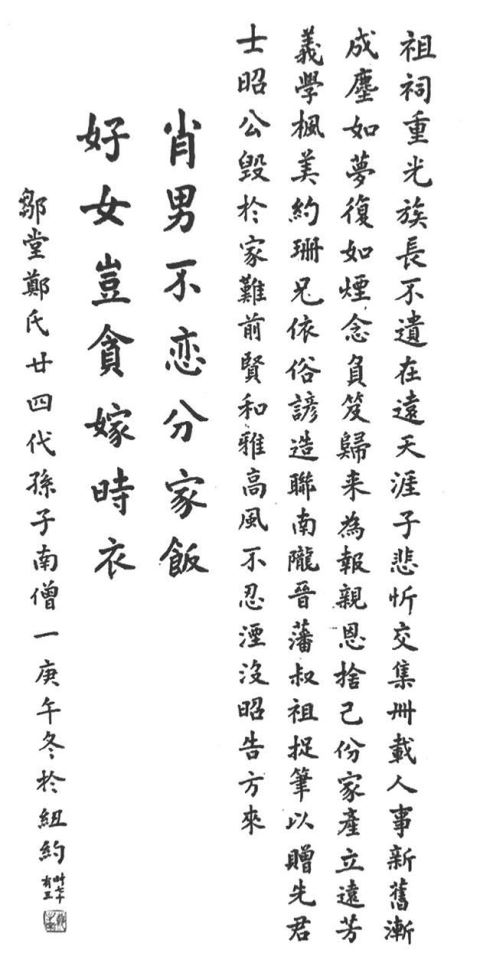 祖祠重光族長不遺在遠天涯子悲忻交集卅載人事新舊漸
成塵如夢復如煙念負笈歸来為報親恩捨己份家產立遠芳
義學楓美約珊兄依俗諺造聯南隴晉藩叔祖捉筆以贈先君
士昭公毀於家難前賢和雅高風不忍湮沒昭告方來
肖男不恋分家飯
好女豈貪嫁時衣
鄒堂鄭氏廿四代孫子南僧一庚午冬於紐約
時七十
有三